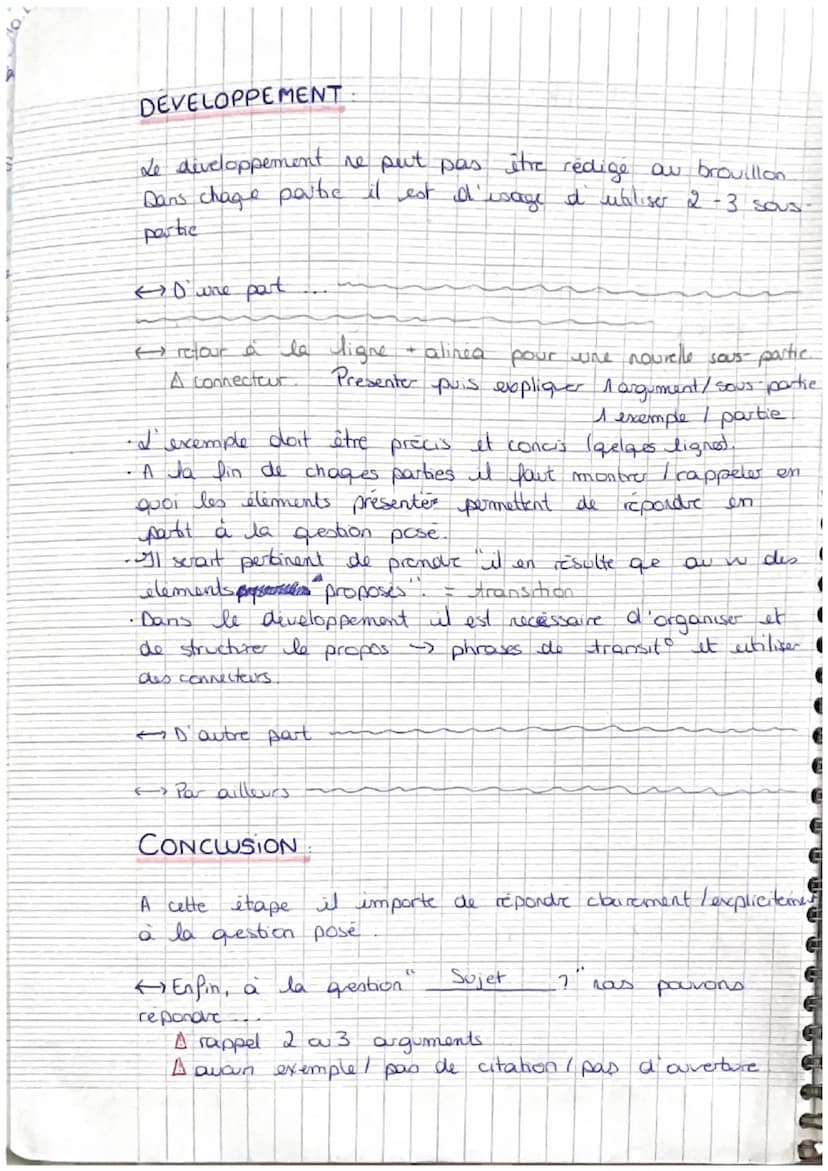 DÉVELOPPEMENT :
Le développement ne peut pas être rédigé au brouillon
Dans chaqe partie il est d'usage d'utiliser 2-3 sous-
partie
↔ D'une part ...
↔ retour à la ligne + alinéa pour une nouvelle sous-partie
Δ connecteur. Présenter puis expliquer 1 argument/sous-partie
1 exemple / partie.
· L'exemple doit être précis et concis (quelqes lignes).
· A la fin de chaqes parties il faut montrer / rappeler en
quoi les éléments présentés permettent de répondre en
partit à la qestion posé.
· Il serait pertinent de prendre "il en résulte qe au vu des
elements "proposés". = transition
· Dans le développement il est necéssaire d'organiser et
de structurer le propos → phrases de transit° et utiliser
des connecteurs.
↔ D'autre part
↔ Par ailleurs
CONCLUSION :
A cette étape il importe de répondre clairement / explicitement
à la qestion posé.
↔ Enfin, à la qestion " Sujet ?" nous pouvons
répondre ...
Δ rappel 2 ou 3 arguments
Δ aucun exemple / pas de citation / pas d'ouverture